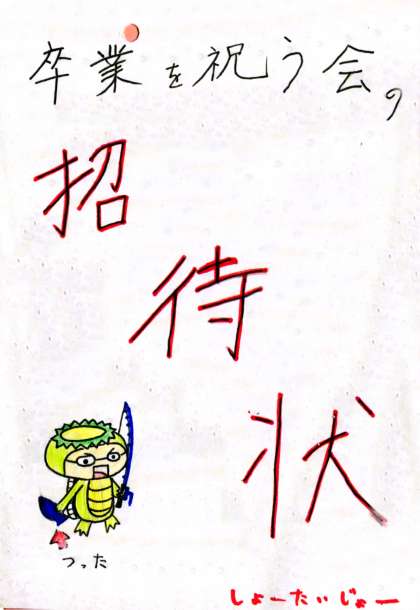 卒業を祝う会の
招
待
状
つった
しょーたいじょー